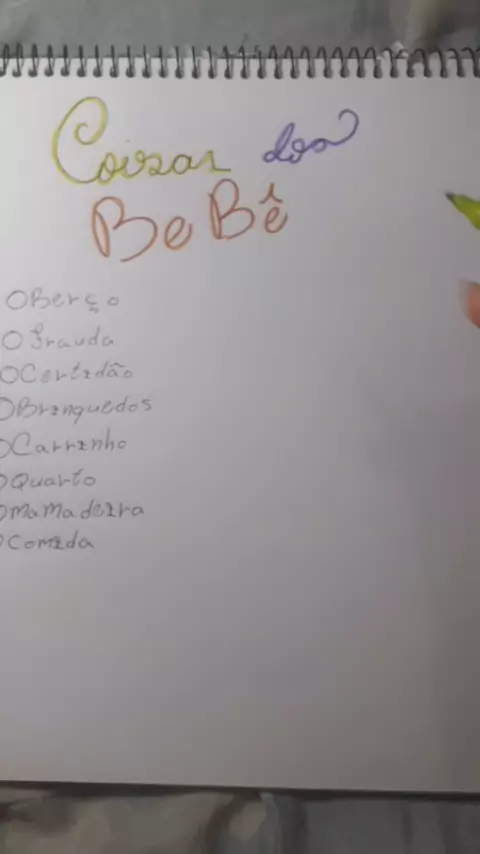 Coisas dos
BeBê
OBerço
OFrauda
OCertidão
OBrinquedos
OCarrinho
OQuarto
OMaMadeira
OComida